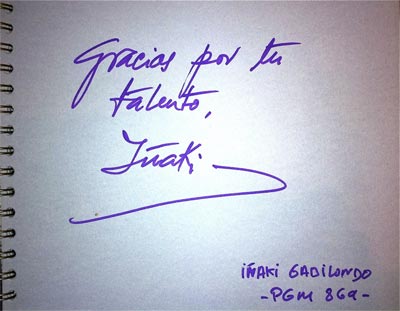 Gracias por tu
talento,
Iñaki
IÑAKI GABILONDO
-PGM 869-